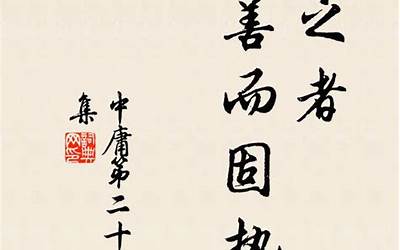 之者
善而固执
中庸第二十
集